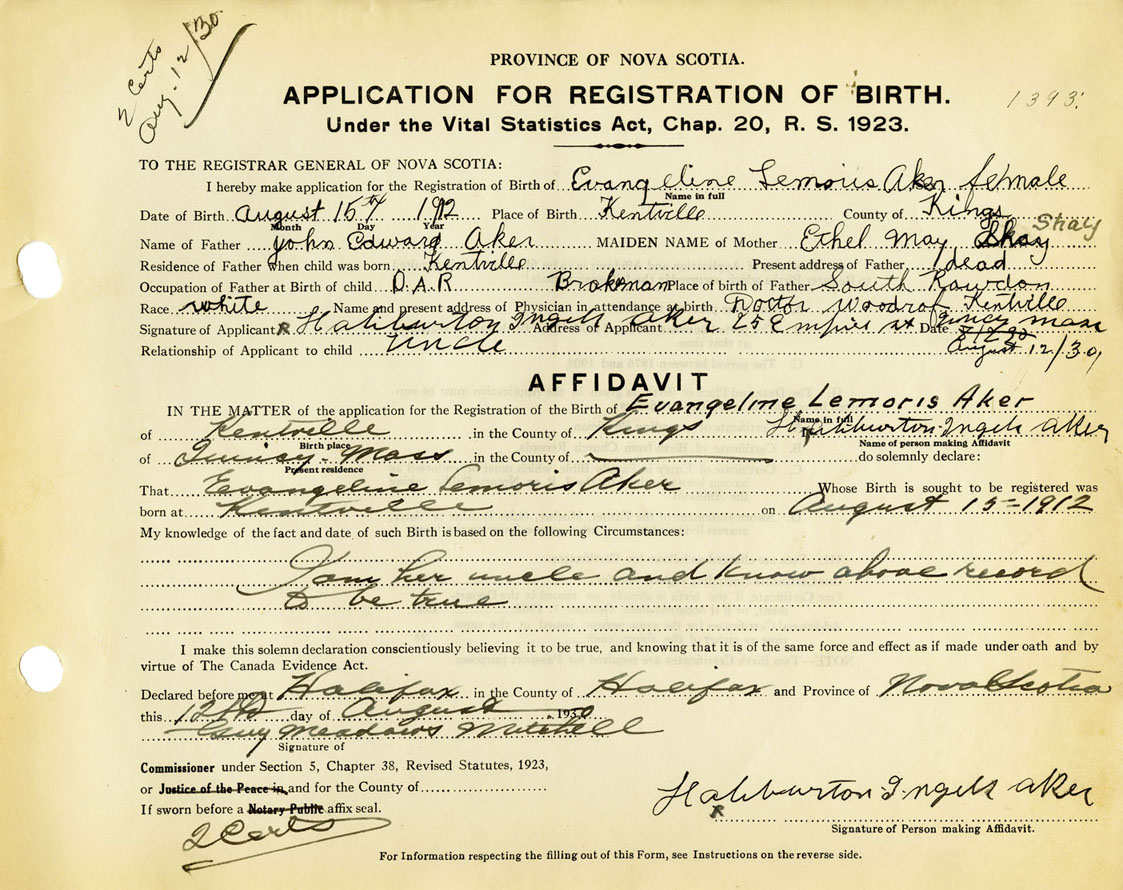 2 Certs
Aug. 12/30
PROVINCE OF NOVA SCOTIA.
APPLICATION FOR REGISTRATION OF BIRTH.
1393
Under the Vital Statistics Act, Chap. 20, R. S. 1923.
TO THE REGISTRAR GENERAL OF NOVA SCOTIA:
I hereby make application for the Registration of Birth of Evangeline Lemoris Aker female
Name in full
Date of Birth August 15th 1912 Place of Birth Kentville County of Kings
Month Day Year
Shay
Name of Father John Edward Aker MAIDEN NAME of Mother Ethel May Shay
Residence of Father when child was born Kentville Present address of Father dead
Occupation of Father at Birth of child D.A.R Brakeman Place of birth of Father South Rawdon
Race white Name and present address of Physician in attendance at birth Doctor Woodrof Kentville
Signature of Applicant x Haliburton Ingels Aker Address of Applicant 25 Empire st Quincy Mass Date
Relationship of Applicant to child uncle August 12/30
AFFIDAVIT
IN THE MATTER of the application for the Registration of the Birth of Evangeline Lemoris Aker
Name in full
of Kentville in the County of Kings Haliburton Ingels Aker
Birth place Name of person making Affidavit
of Quincy - Mass in the County of do solemnly declare:
Present residence
That Evangeline Lemoris Aker Whose Birth is sought to be registered was
born at Kentville on August 15-1912
My knowledge of the fact and date of such Birth is based on the following Circumstances:
I am her uncle and know above record
to be true
I make this solemn declaration conscientiously believing it to be true, and knowing that it is of the same force and effect as if made under oath and by
virtue of The Canada Evidence Act.
Declared before me at Halifax in the County of Halifax and Province of Nova Scotia
this 12th day of August 1930
Guy Meadows Mitchell
Signature of
Commissioner under Section 5, Chapter 38, Revised Statutes, 1923,
or Justice of the Peace in and for the County of
If sworn before a Notary Public affix seal.
Haliburton Ingels Aker
x
2 Certs
Signature of Person making Affidavit.
For Information respecting the filling out of this Form, see Instructions on the reverse side.